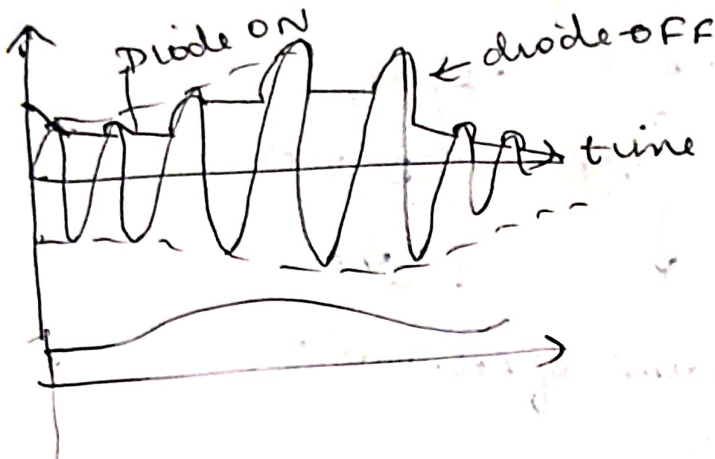 Diode ON
diode OFF
time